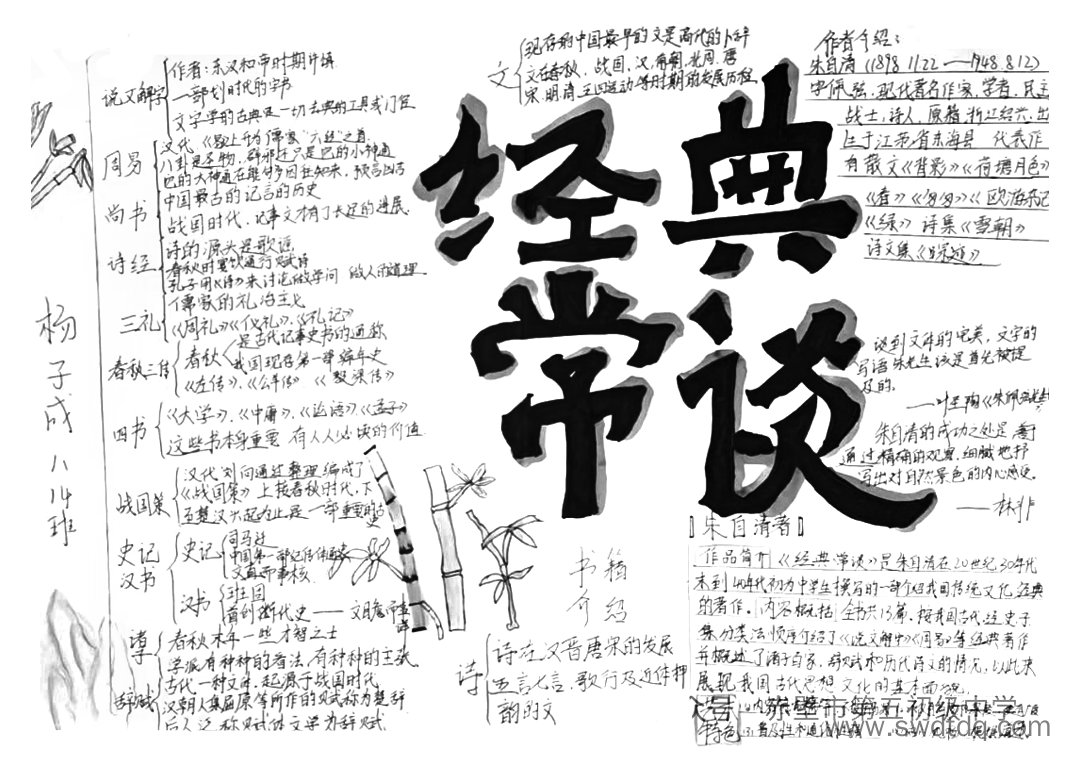 经典
常谈
【朱自清著】
杨子成 八14班
说文解字
作者：东汉和帝时期许慎
一部划时代的字书
文字学的古典是一切古典的工具或门径
周易
汉代，
八卦是圣物
尚书
中国最古的记言的历史
战国时代，记事文才有了长足的进展
诗经
诗的源头是歌谣
春秋时宴饮通行赋诗
孔子用《诗》来讨论做学问 做人的道理
三礼
儒家的礼治主义
《周礼》《仪礼》、《礼记》
春秋三传
春秋
是古代记事史书的通称
我国现存第一部编年史
《左传》、《公羊传》 《穀梁传》
四书
《大学》、《中庸》、《论语》、《孟子》
这些书本身重要 有人人必读的价值
战国策
汉代刘向通过整理编成了
《战国策》上接春秋时代，下
至楚汉兴起为止是一部重要的古史
史记
汉书
史记
司马迁
中国第一部纪传体通史
文直而事核
汉书
班固
首创断代史——文赡而事详
诸子
春秋末年一些才智之士
学派有种种的看法，有种种的主张
辞赋
古代一种文体，起源于战国时代
汉朝人集屈原等所作的赋称为楚辞
后人泛称赋体文学为辞赋
文
现存的中国最早的文是商代的卜辞
文在春秋、战国、汉、南朝、北周、唐
宋、明、清、五四运动等时期的发展历程
书籍
介绍
诗
诗在汉晋唐宋的发展
五言七言、歌行及近体押
韵的文
作者介绍：
朱自清（1898.11.22——1948.8.12）
字佩弦，现代著名作家，学者，民主
战士，诗人，原籍浙江绍兴，出
生于江苏省东海县 代表作
有散文《背影》《荷塘月色》
《春》《匆匆》《欧游杂记》
《绿》 诗集《雪朝》
诗文集《踪迹》
谈到文体的完美，文字的
写语朱先生该是首先被提
及的。
——叶圣陶
朱自清的成功之处是善
通过精确的观察，细腻地抒
写出对自然景色的内心感受
——林非
作品简介《经典常谈》是朱自清在20世纪30年代
末到40年代初为中学生撰写的一部介绍我国传统文化经典
的著作。内容概括 全书共13篇，按我国古代经史子
集分类法顺序介绍了《说文解字》《周易》等经典著作
并概述了诸子百家，辞赋和历代诗文的情况，以此来
展现我国古代思想文化的基本面貌。
特色
赤壁市第五初级中学
www.swdtdq.com